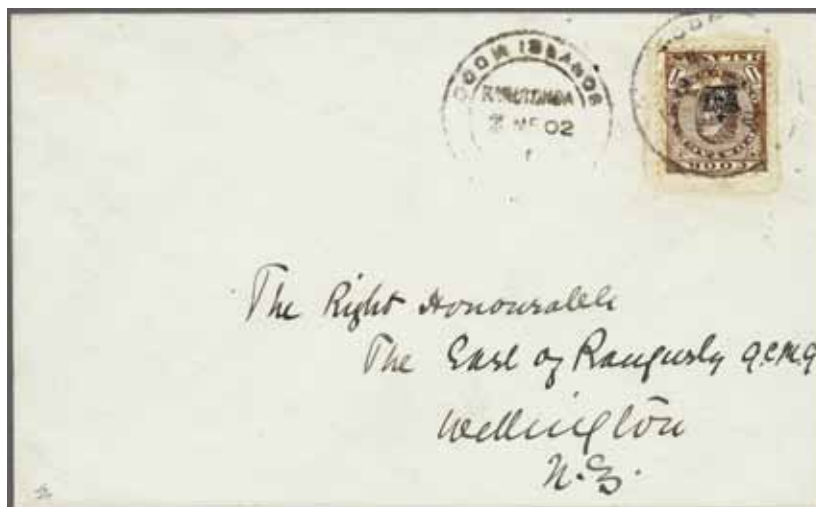 COOK ISLANDS
RAROTONGA
MR 02
The Right Honourable
The Earl of Ranfurly G.C.M.G
Wellington
N.Z.
COOK